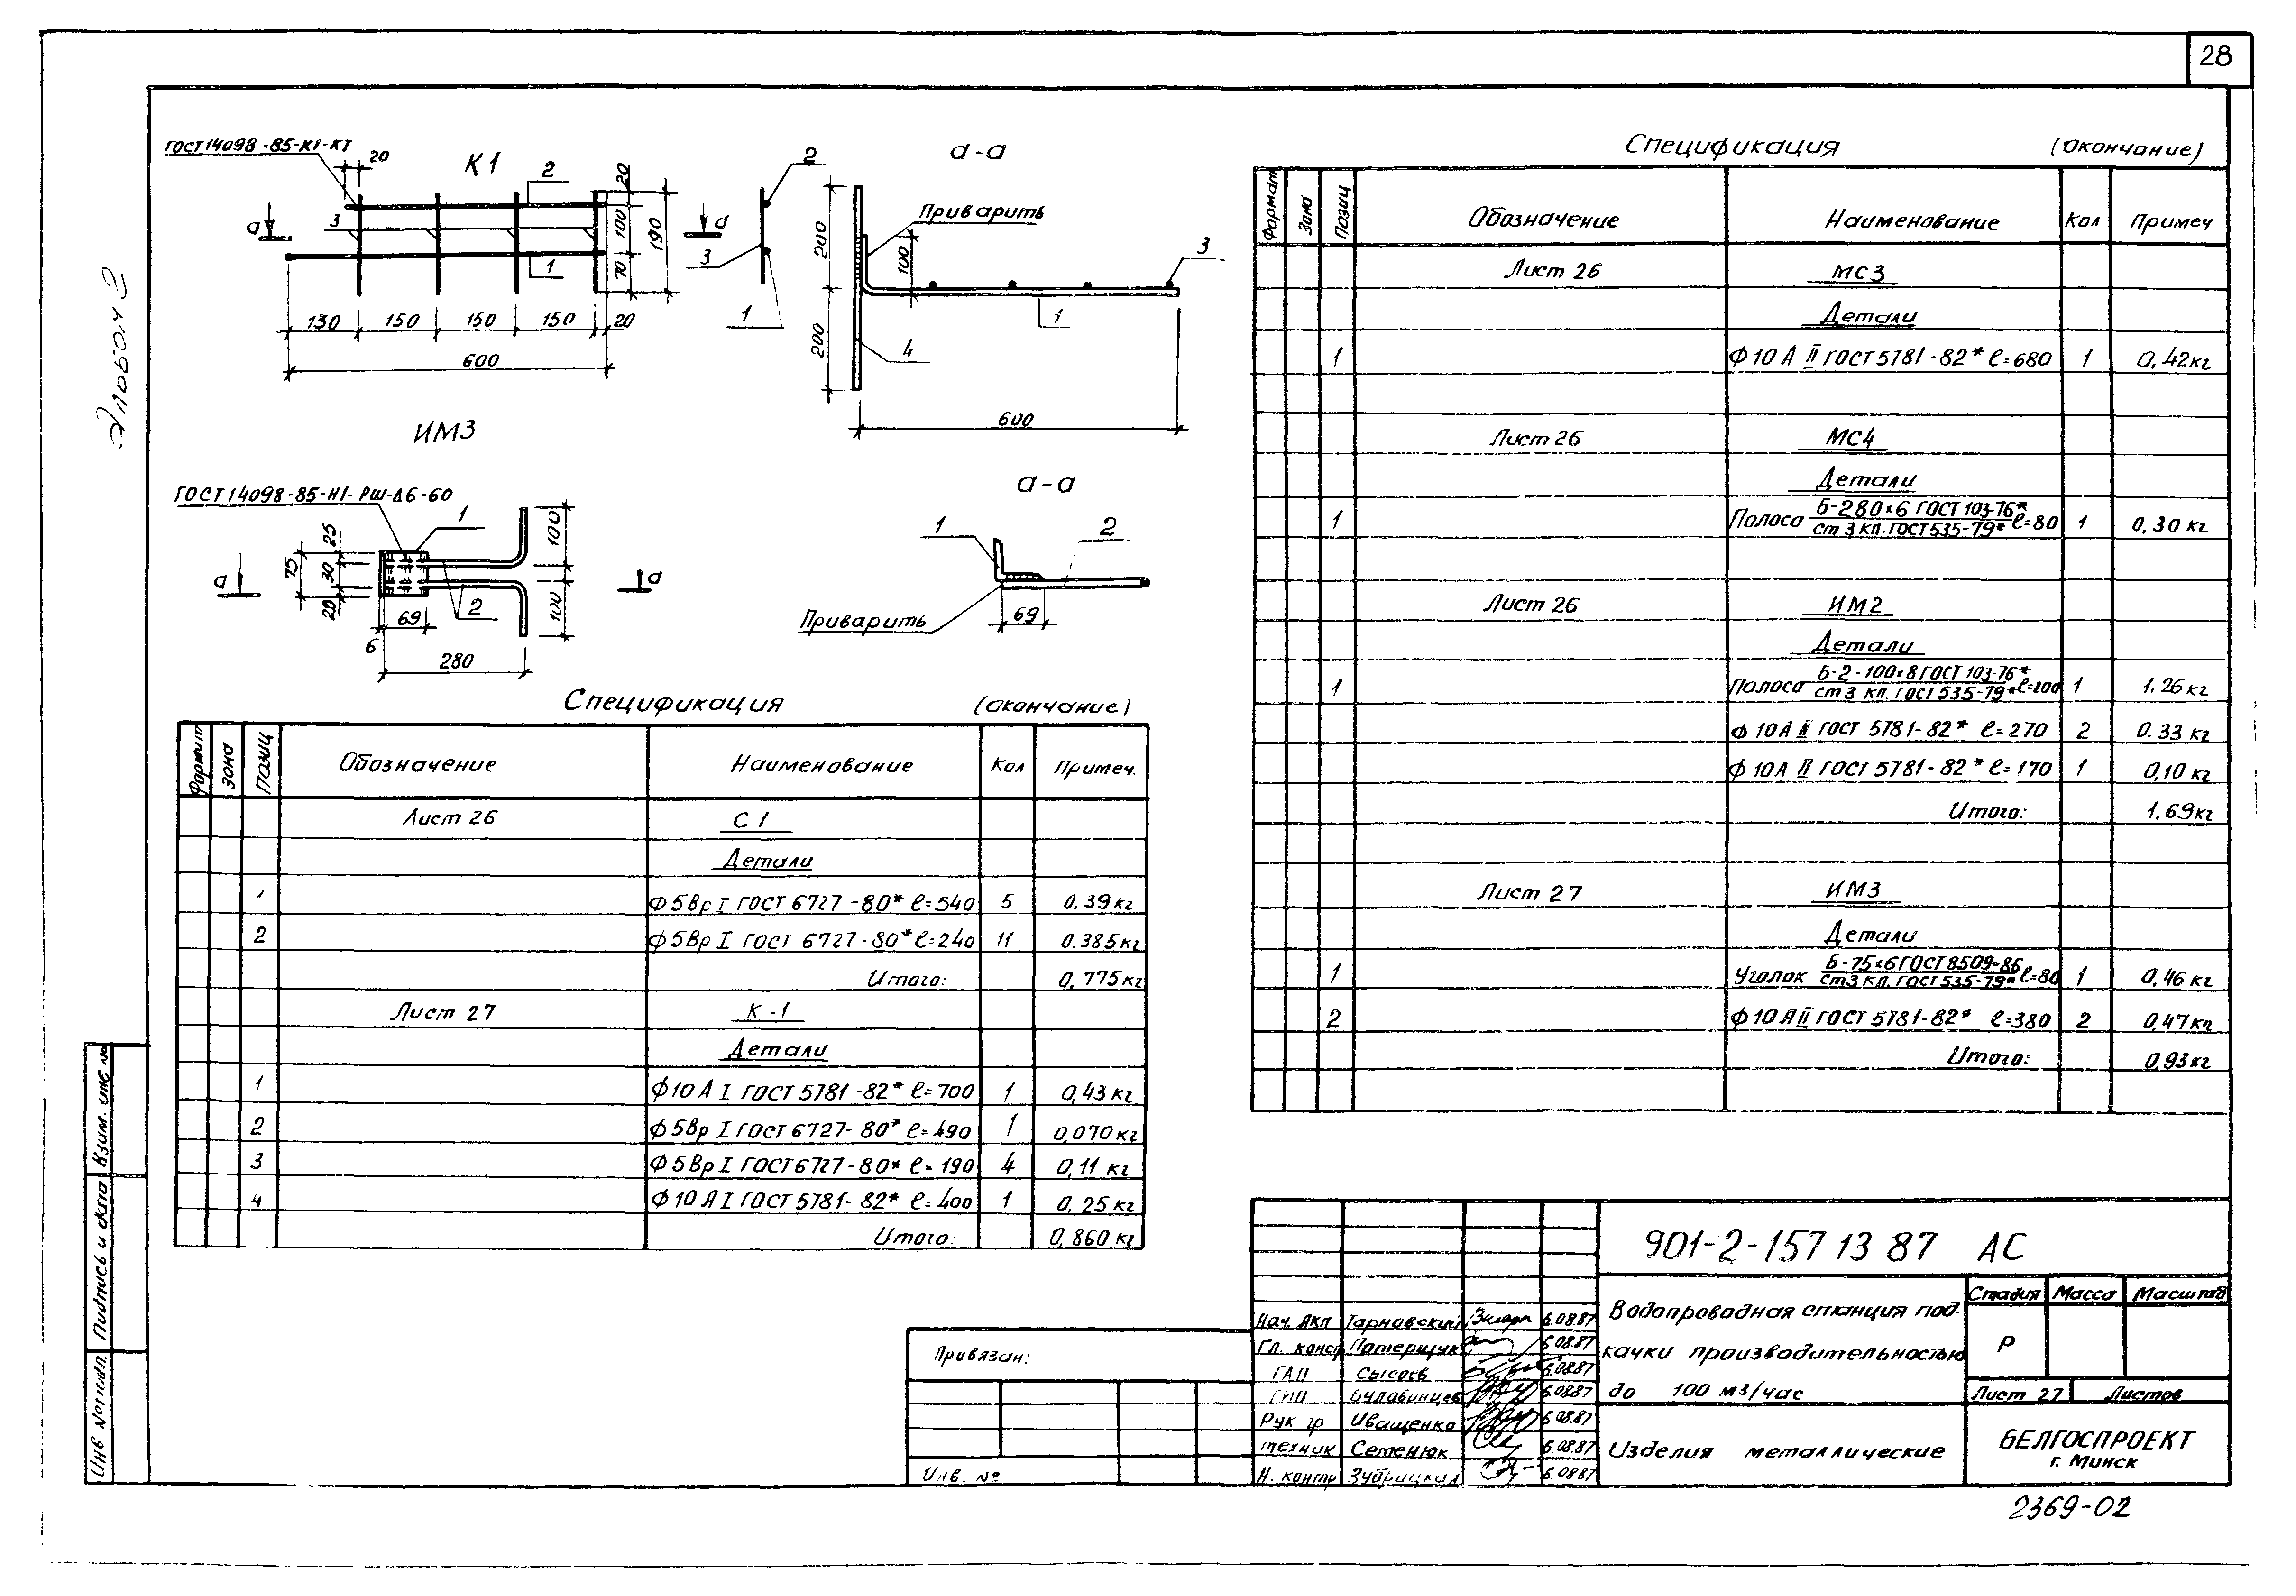 28
Альбом 2
ГОСТ 14098-85-К1-КТ
20
К1
2
20
100
190
70
3
1
а
а
130 150 150 150 20
600
2
3
1
а-а
Приварить
200
100
200
3
1
4
600
ИМ3
ГОСТ 14098-85-Н1-РШ-Δ6-60
1
25
75
30
20
100
100
а
а
2
69
6
280
а-а
1
2
Приварить
69
Спецификация (окончание)
Формат Зона Позиц Обозначение Наименование Кол Примеч.
Лист 26 С1
Детали
1 Ф5ВрI ГОСТ 6727-80* ℓ=540 5 0.39кг
2 Ф5ВрI ГОСТ 6727-80* ℓ=240 11 0.385кг
Итого: 0,775кг
Лист 27 К-1
Детали
1 Ф10АI ГОСТ 5781-82* ℓ=700 1 0,43кг
2 Ф5ВрI ГОСТ 6727-80* ℓ=490 1 0,070кг
3 Ф5ВрI ГОСТ 6727-80* ℓ=190 4 0,11кг
4 Ф10АI ГОСТ 5781-82* ℓ=400 1 0,25кг
Итого: 0,860кг
Спецификация (окончание)
Формат Зона Позиц Обозначение Наименование Кол Примеч.
Лист 26 МС3
Детали
1 Ф10АII ГОСТ 5781-82* ℓ=680 1 0,42кг
Лист 26 МС4
Детали
1 Полоса Б-280х6 ГОСТ 103-76* ℓ=80 1 0,30кг
ст 3 кп. ГОСТ 535-79*
Лист 26 ИМ2
Детали
1 Полоса Б-2-100х8 ГОСТ 103-76* ℓ=200 1 1.26кг
ст 3 кп. ГОСТ 535-79*
Ф10АII ГОСТ 5781-82* ℓ=270 2 0.33кг
Ф10АII ГОСТ 5781-82* ℓ=170 1 0,10кг
Итого: 1.69кг
Лист 27 ИМ3
Детали
1 Уголок Б-75х6 ГОСТ 8509-86 ℓ=80 1 0,46кг
Ст3 кп. ГОСТ 535-79*
2 Ф10АII ГОСТ 5781-82* ℓ=380 2 0,47кг
Итого: 0,93кг
Взим. инв №
Подпись и дата
Инв № подл.
Привязан:
Инв. №
Нач. АКП Тарнавский 6.08.87
Гл. констр Потерщук 6.08.87
ГАП Сысоев 6.08.87
ГИП Булавинцев 6.08.87
Рук гр Иващенко 6.08.87
техник Семенюк 6.08.87
Н. контр Зубрицкий 6.08.87
901-2-157 13 87 АС
Водопроводная станция под-
качки производительностью
до 100 м3/час
Стадия Масса Масштаб
Р
Лист 27 Листов
Изделия металлические
БЕЛГОСПРОЕКТ
г. Минск
2369-02